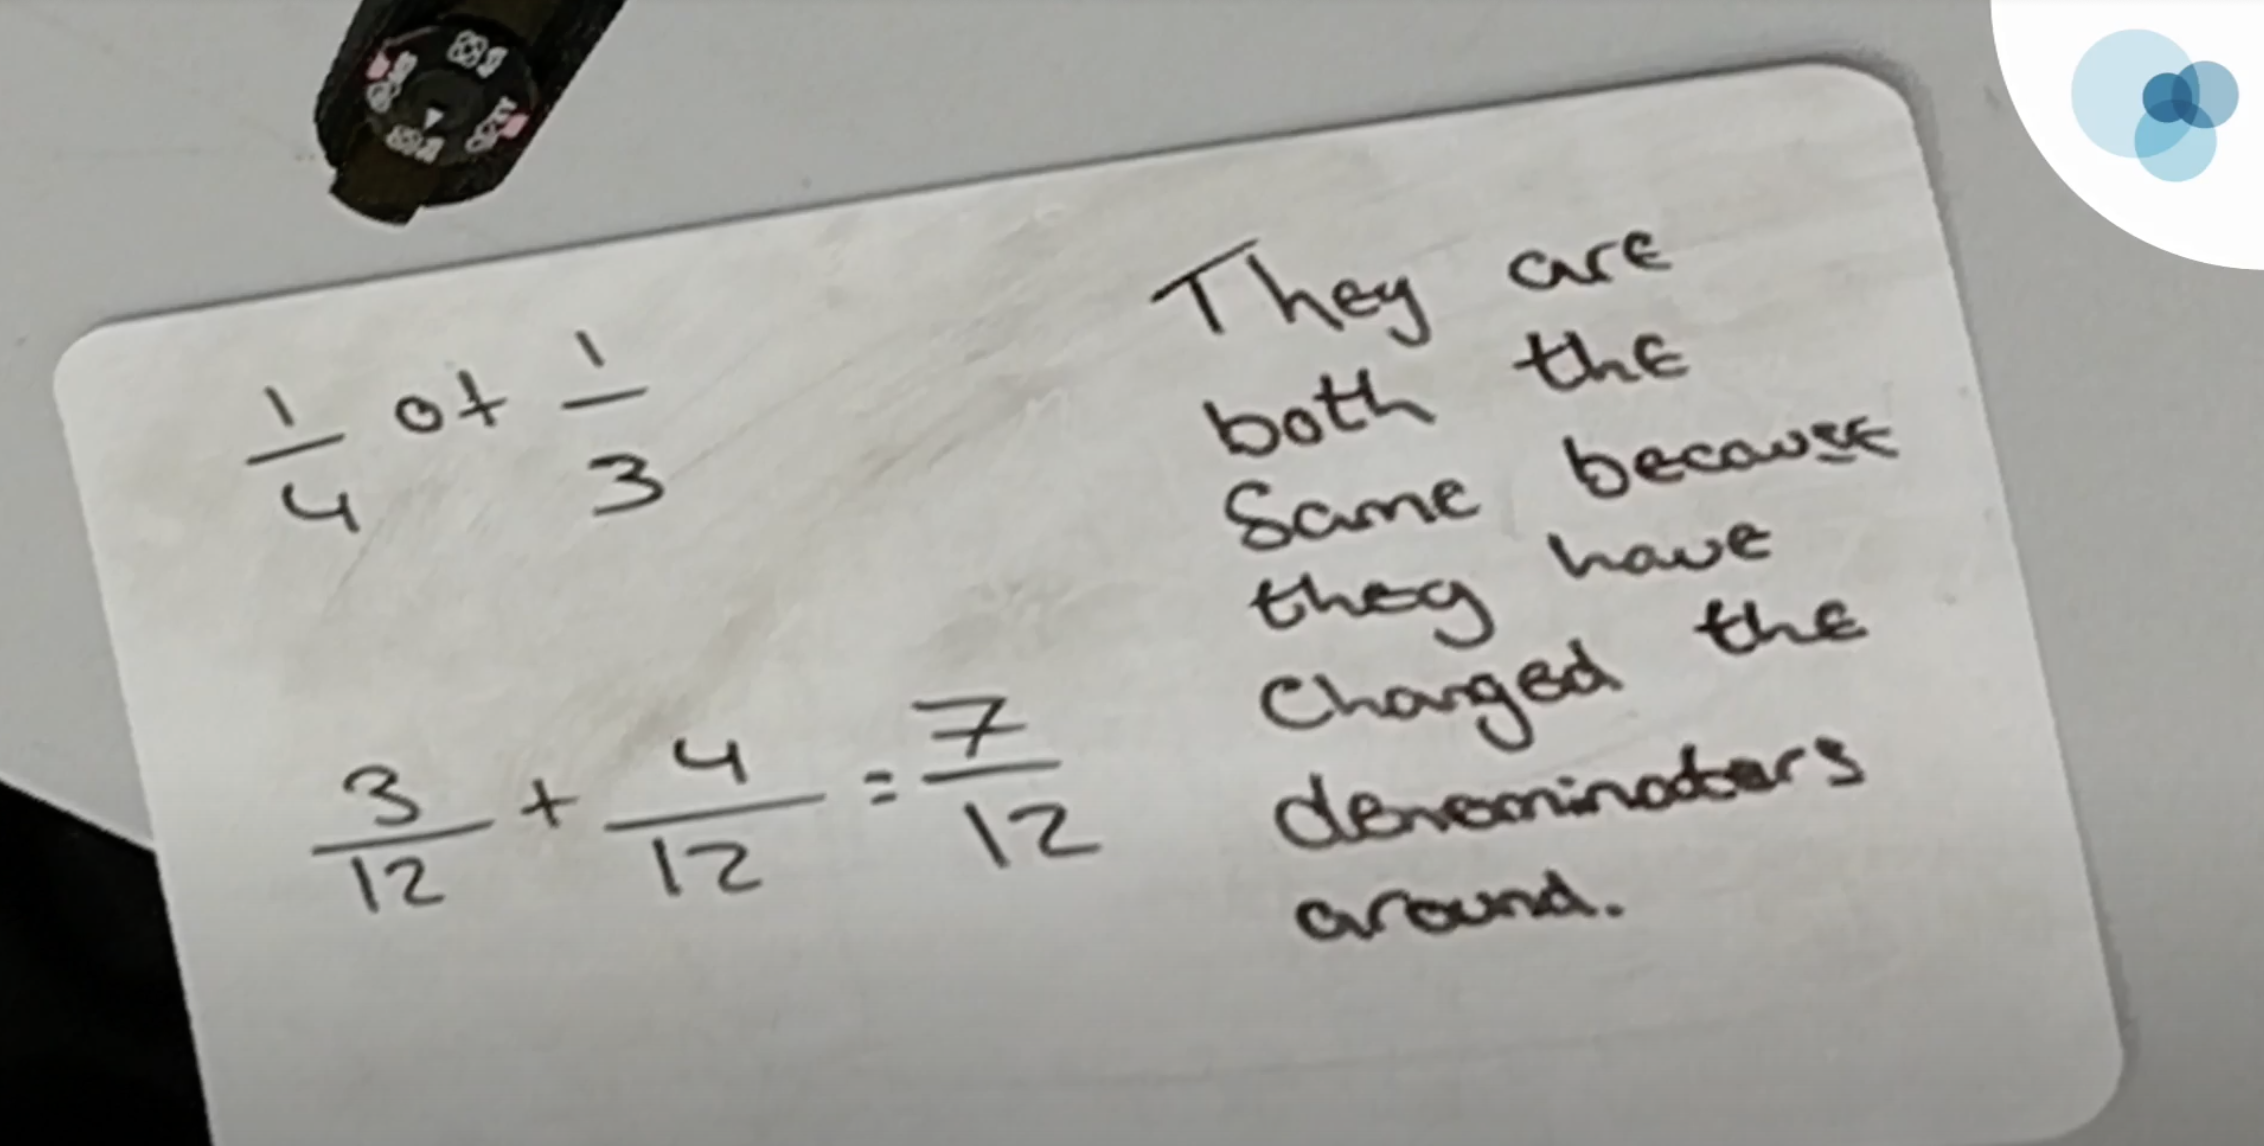 1/4 of 1/3
3/12 + 4/12 = 7/12
They are
both the
Same because
they have
Changed the
denominators
around.